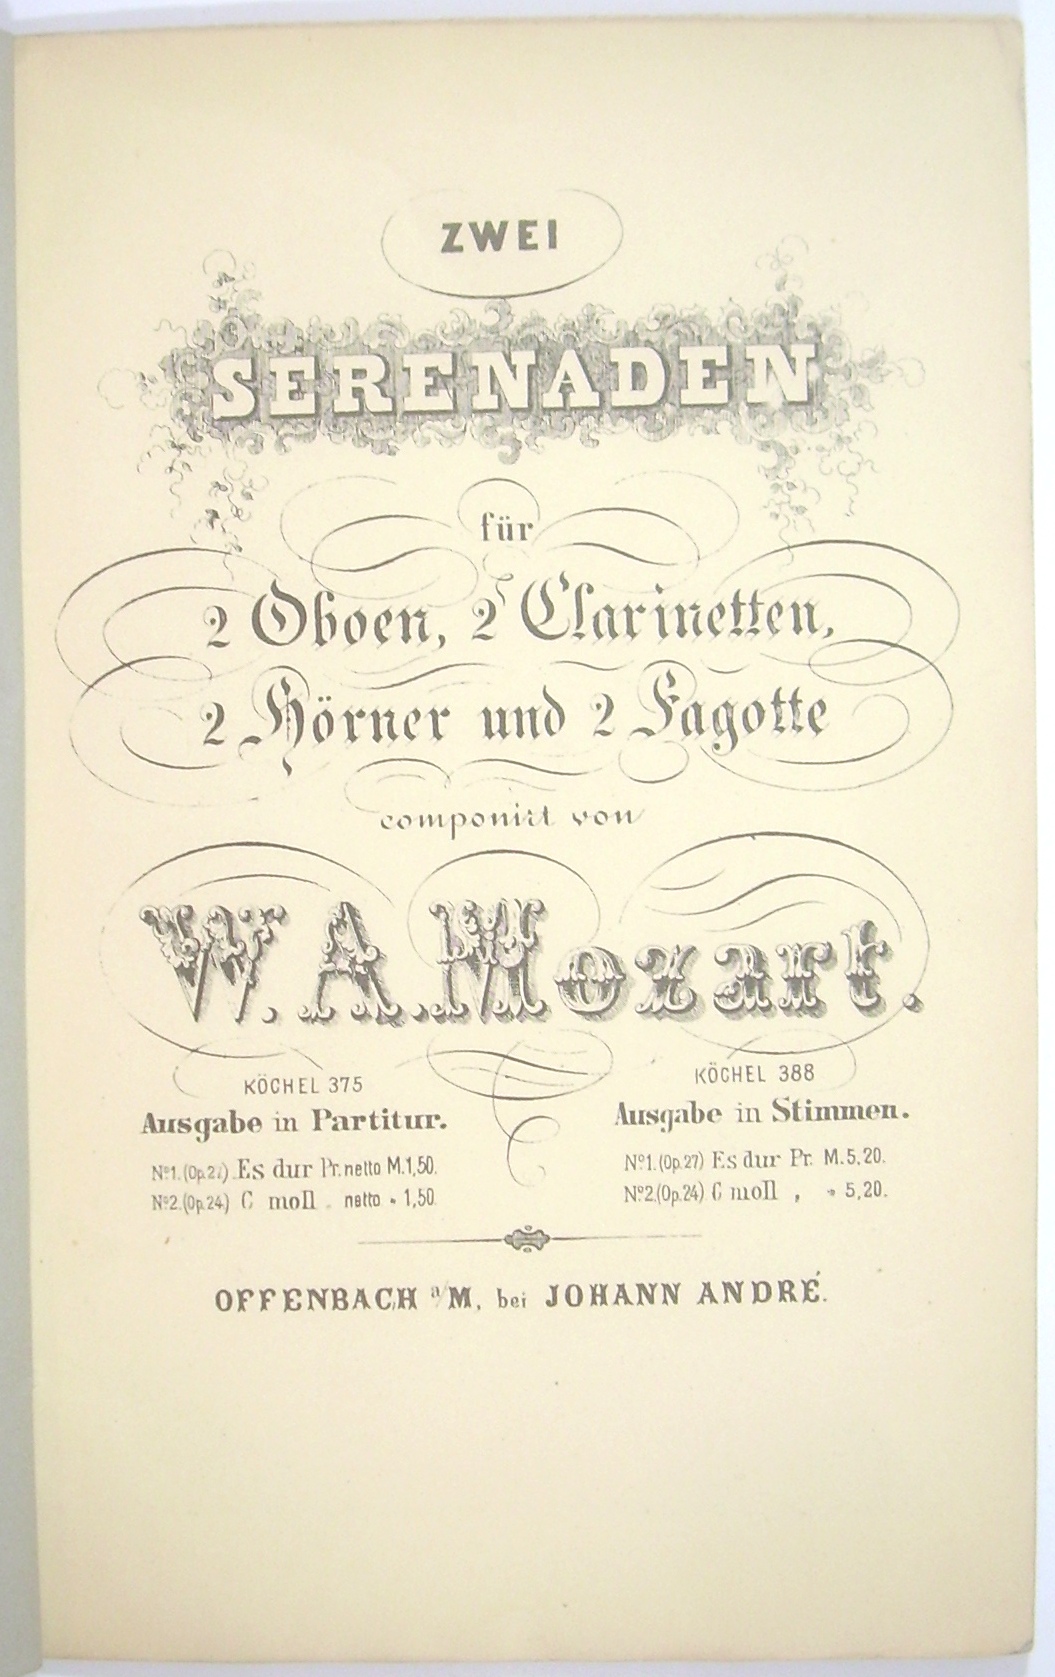 ZWEI
SERENADEN
für
2 Oboen, 2 Clarinetten,
2 Hörner und 2 Fagotte
componirt von
W. A. Mozart.
KÖCHEL 375
Ausgabe in Partitur.
No1. (Op.27) Es dur Pr. netto M.1,50.
No2. (Op.24) C moll „ netto „ 1,50.
KÖCHEL 388
Ausgabe in Stimmen.
No1. (Op.27) Es dur Pr. M.5,20.
No2. (Op.24) C moll „ „ 5,20.
OFFENBACH a/M, bei JOHANN ANDRÉ.